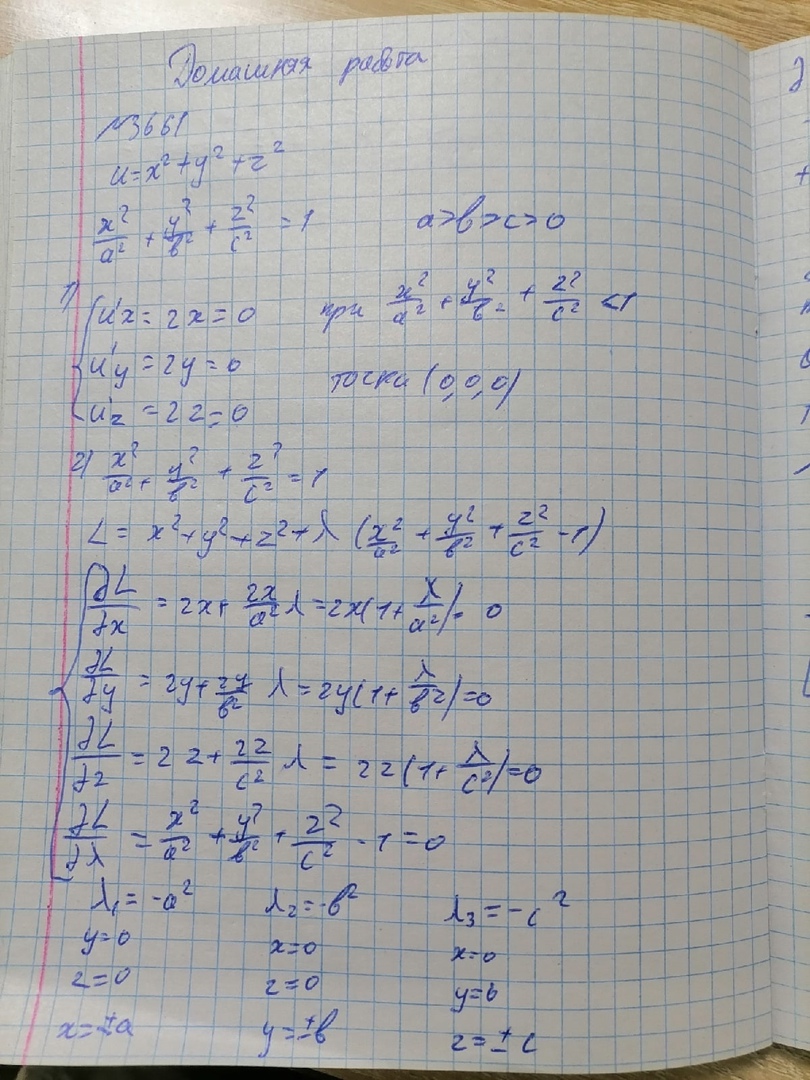 Домашняя работа
№3661
u=x²+y²+z²
x²/a² + y²/b² + z²/c² = 1   a>b>c>0
1) { u'x = 2x = 0   при x²/a² + y²/b² + z²/c² < 1
u'y = 2y = 0   точка (0,0,0)
u'z = 2z = 0
2) x²/a² + y²/b² + z²/c² = 1
L = x²+y²+z²+λ (x²/a² + y²/b² + z²/c² - 1)
{ ∂L/∂x = 2x + 2x/a² λ = 2x(1 + λ/a²) = 0
∂L/∂y = 2y + 2y/b² λ = 2y(1 + λ/b²) = 0
∂L/∂z = 2z + 2z/c² λ = 2z(1 + λ/c²) = 0
∂L/∂λ = x²/a² + y²/b² + z²/c² - 1 = 0
λ₁ = -a²   λ₂ = -b²   λ₃ = -c²
y=0   x=0   x=0
z=0   z=0   y=0
x=±a   y=±b   z=±c